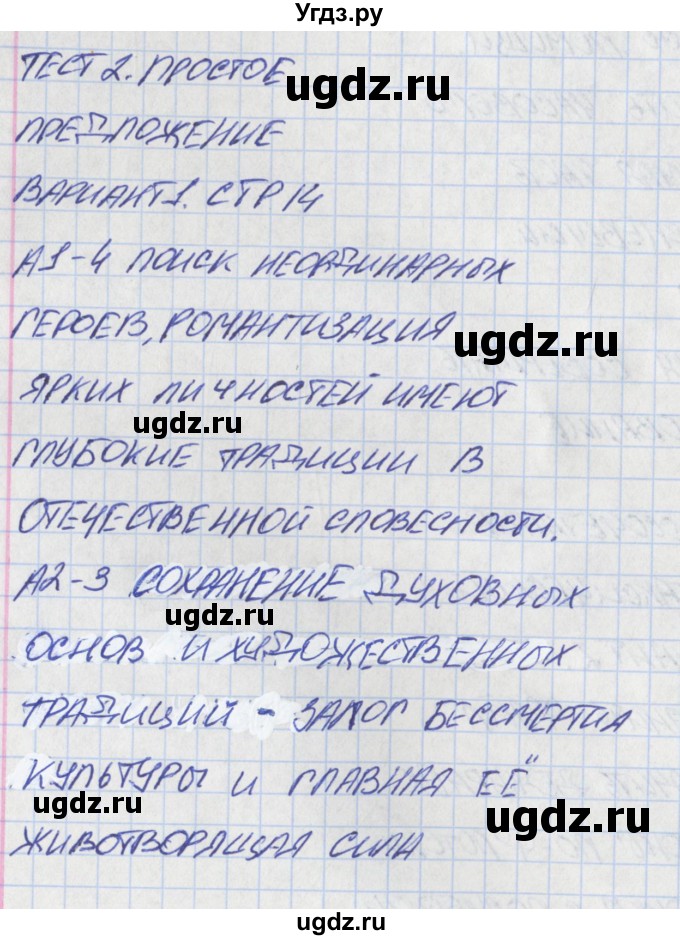 Угдз.ру
ТЕСТ 2. ПРОСТОЕ
ugdz.ru
ПРЕДЛОЖЕНИЕ
ВАРИАНТ 1. СТР 14
А1-4 ПОИСК НЕОРДИНАРНЫХ
ГЕРОЕВ, РОМАНТИЗАЦИЯ
ugdz.ru
ЯРКИХ ЛИЧНОСТЕЙ ИМЕЮТ
ugdz.ru
ГЛУБОКИЕ ТРАДИЦИИ В
ОТЕЧЕСТВЕННОЙ СЛОВЕСНОСТИ.
А2-3 СОХРАНЕНИЕ ДУХОВНЫХ
ugdz.ru
ОСНОВ И ХУДОЖЕСТВЕННЫХ
ТРАДИЦИЙ - ЗАЛОГ БЕССМЕРТИЯ
КУЛЬТУРЫ И ГЛАВНАЯ ЕЁ
ugdz.ru
ugdz.ru
ЖИВОТВОРЯЩАЯ СИЛА
ugdz.ru